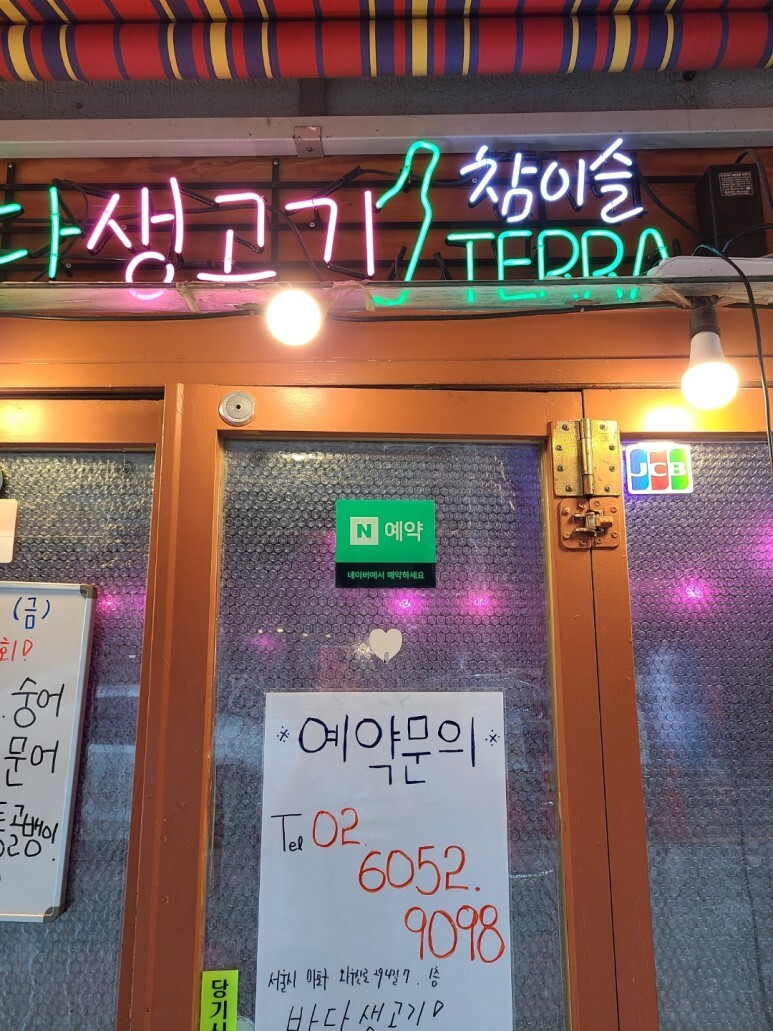 다생고기
참이슬
TERRA
JCB
N 예약
네이버에서 예약하세요
(금)
회!
숭어
문어
통골뱅이
예약문의
Tel 02.
6052.
9098
서울시 마포구 와우산로29길 7. 1층
바다생고기!
당기시